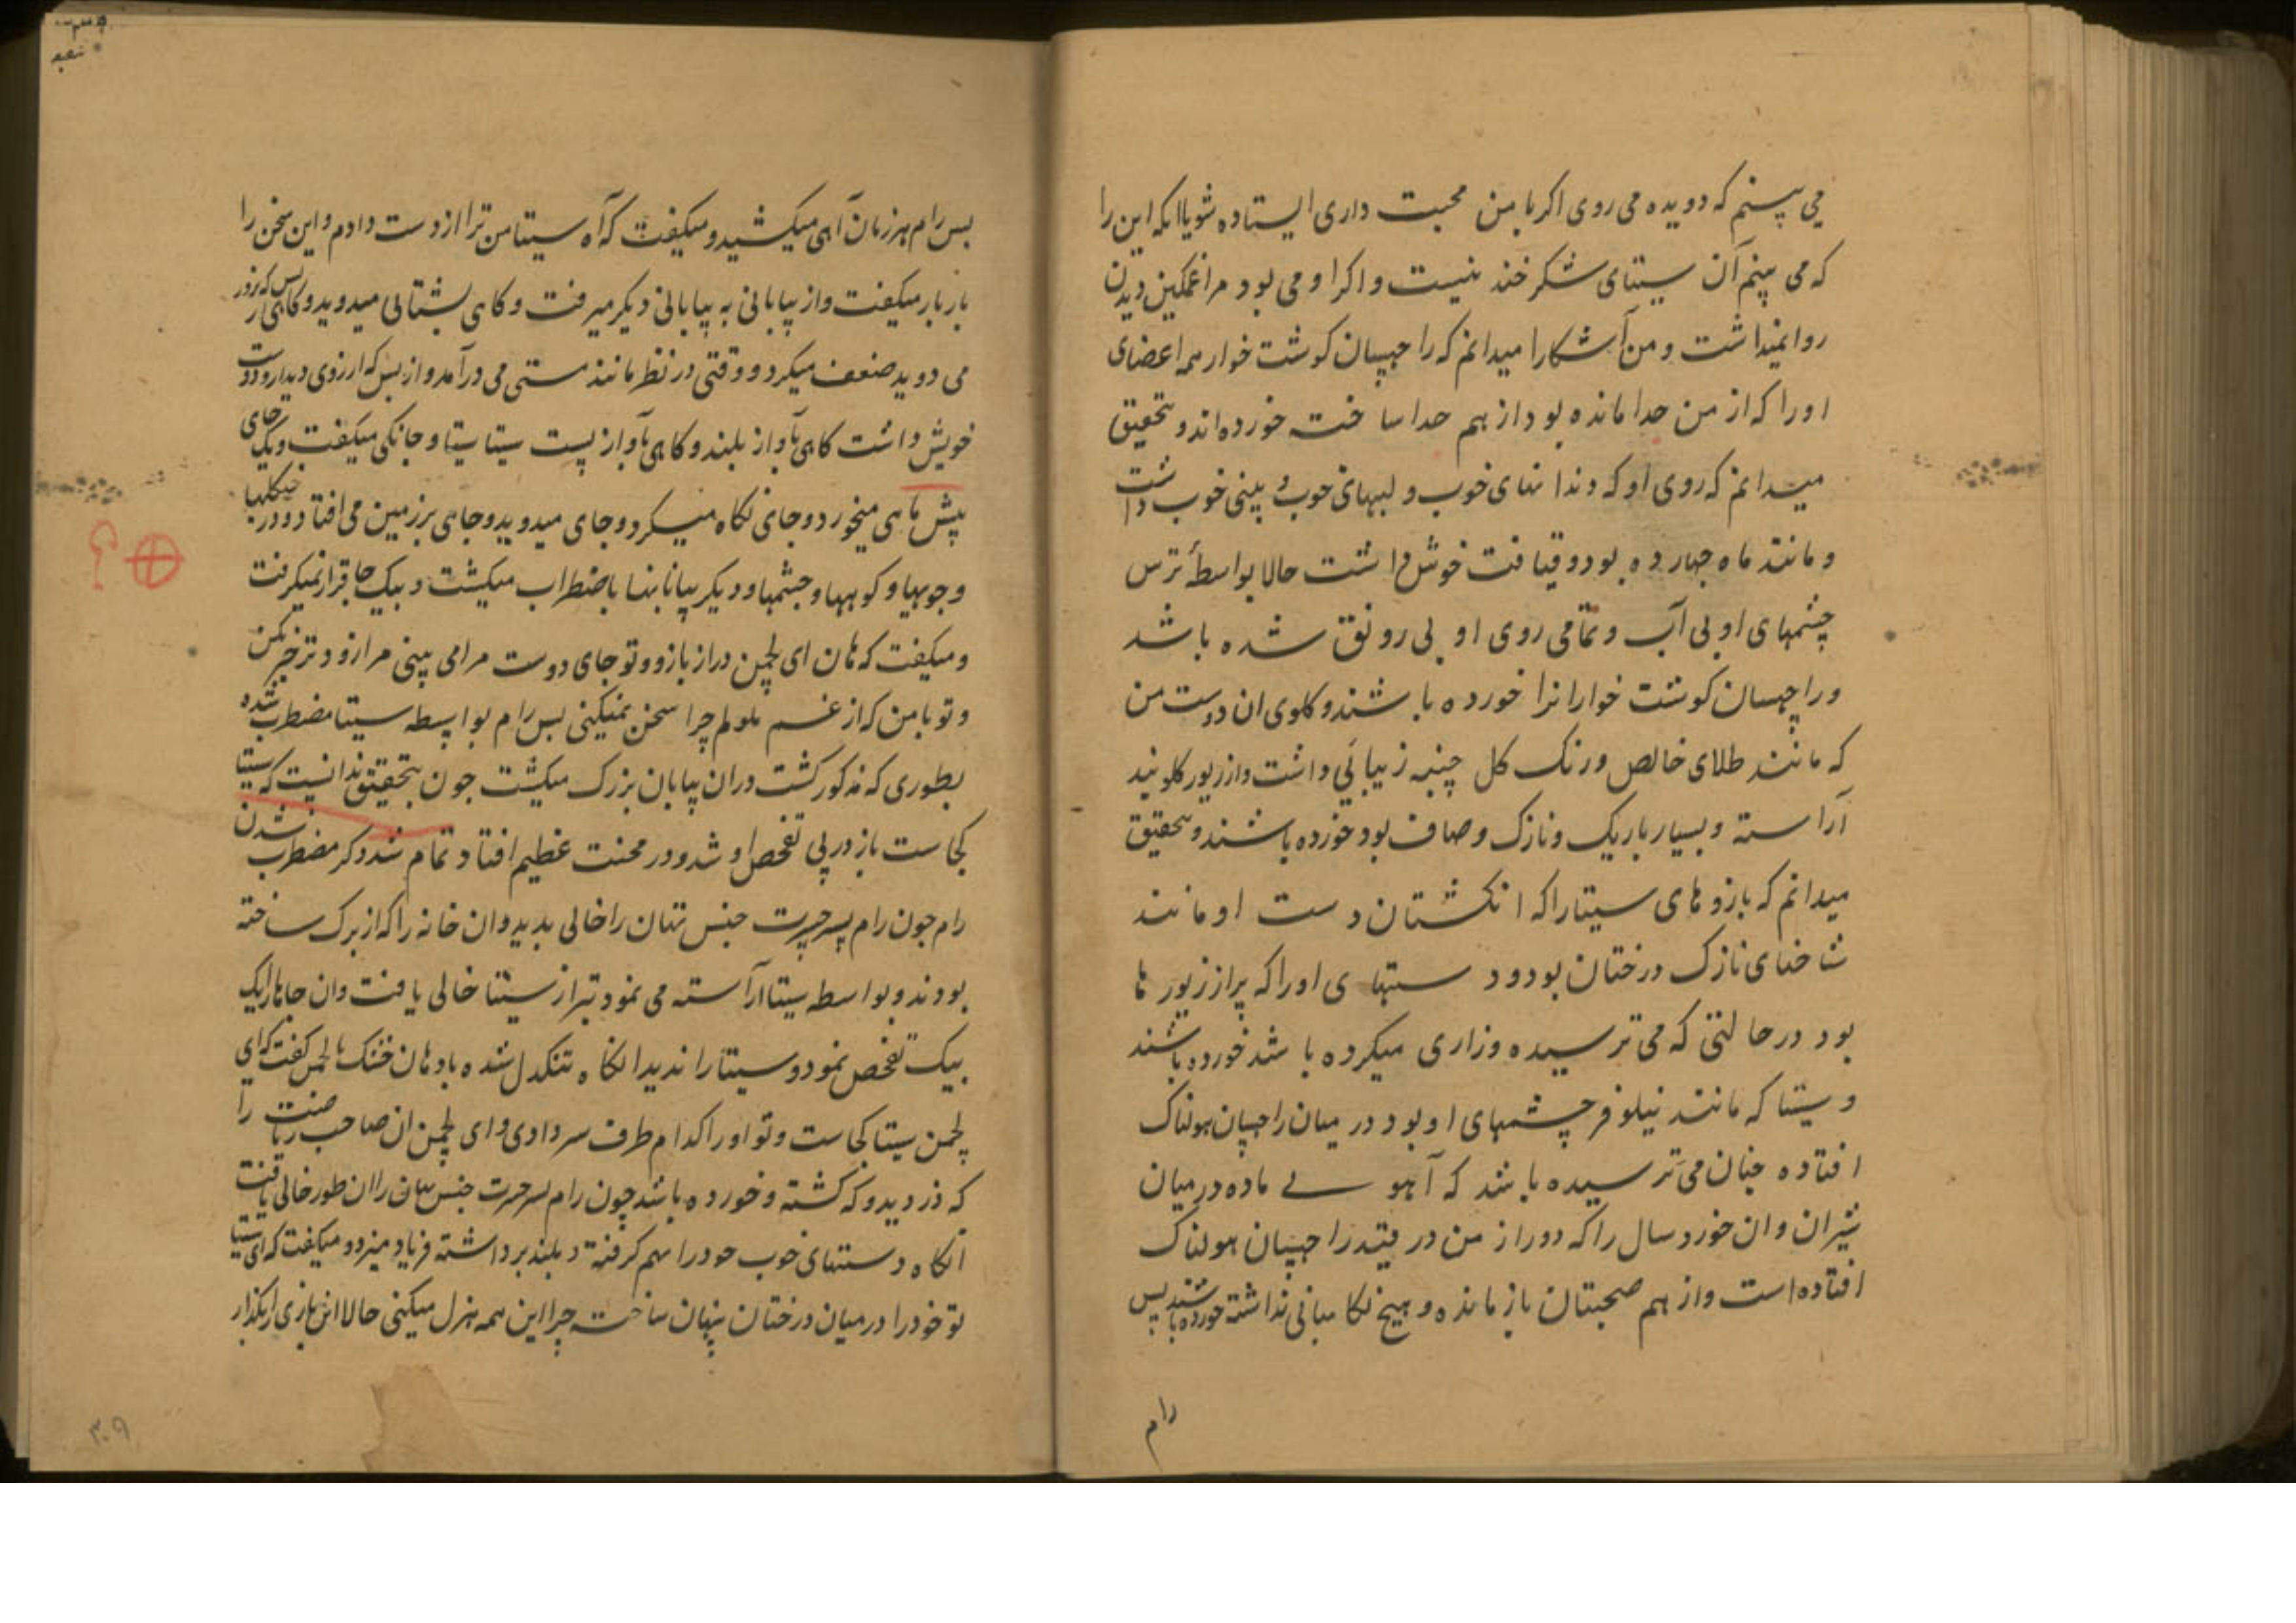 می بینم که دویده می روی اکر با من محبت داری ایستاده شو یا انکه این را
که می بینم آن سیتای شکر خند نیست و اکر او می بود مرا غمکین دیدن
روا نمیداشت و من آشکارا میدانم که راچهسان کوشت خوار همه اعضای
او را که از من جدا مانده بود از هم جدا ساخته خورده اند و تحقیق
میدانم که روی او که دندانهای خوب و لبهای خوب و بینی خوب داشت
و مانند ماه چهارده بود و قیافت خوش داشت حالا بواسطهٔ ترس
چشمهای او بی آب و تمامی روی او بی رونق شده باشد
و راچهسان کوشت خوار انرا خورده باشند و کلوی ان دوست من
که مانند طلای خالص و رنک کل چنپه زیبائی داشت و از زیور کلوبند
آراسته و بسیار باریک و نازک و صاف بود خورده باشند و تحقیق
میدانم که بازوهای سیتا را که انکشتان دست او مانند
شاخهای نازک درختان بود و دستهای او را که پر از زیورها
بود در حالتی که می ترسیده و زاری میکرده باشد خورده باشند
و سیتا که مانند نیلوفر چشمهای او بود در میان راچهسان هولناک
افتاده چنان می ترسیده باشد که آهوے ماده در میان
شیران و ان خورد سال را که دور از من در قید راچهسان هولناک
افتاده است و از هم صحبتان باز مانده و هیچ نکاهبانی نداشته خورده باشند پس
رام
پس رام هر زمان آهی میکشید و میکفت که آه سیتا من ترا از دست دادم و این سخن را
بار بار میکفت و از بیابانی به بیابانی دیکر میرفت و کاهی بشتابی میدوید و کاهی از بس که زور
می دوید ضعف میکرد و وقتی در نظر مانند مستی می درآمد و از بس که ارزوی دیدار دوست
خویش داشت کاهی بآواز بلند و کاهی بآواز پست سیتا سیتا و جانکی میکفت و یک جای
پیش پا هی میخورد و جای نکاه میکرد و جای میدوید و جاهی بر زمین می افتاد و در جنکلها
و جویها و کوهها و چشمها و دیکر بیابانها باضطراب میکشت و بیک جا قرار نمیکرفت
و میکفت که هان ای لچمن دراز بازو و تو جای دوست مرا می بینی مرا زودتر خبر کن
و تو با من که از غم ملولم چرا سخن نمیکنی پس رام بواسطه سیتا مضطرب شده
بطوری که مذکور کشت دران بیابان بزرک میکشت چون بتحقیق ندانست که سیتا
کجاست باز در پی تفحص او شد و در محنت عظیم افتاد تمام شد ذکر مضطرب شدن
رام چون رام پسر جسرت جنس تهان را خالی بدید و ان خانه را که از برک ساخته
بودند و بواسطه سیتا آراسته می نمود نیز از سیتا خالی یافت و ان جاها را یک
بیک تفحص نمود و سیتا را ندید انکاه تنکدل شده با دهان خشک با لچمن کفت که ای
لچمن سیتا کجاست و تو او را کدام طرف سر دادی و ای لچمن ان صاحب ریاضت را
که دزدید و که کشته و خورده باشد چون رام پسر جسرت جنس تهان را ان طور خالی یافت
آنکاه دستهای خوب خود را بهم کرفته و بلند برداشته فریاد میزد و میکفت که ای سیتا
تو خود را در میان درختان پنهان ساخته چرا این همه هزل میکنی حالا این بازی را بکذار
۳۰۹